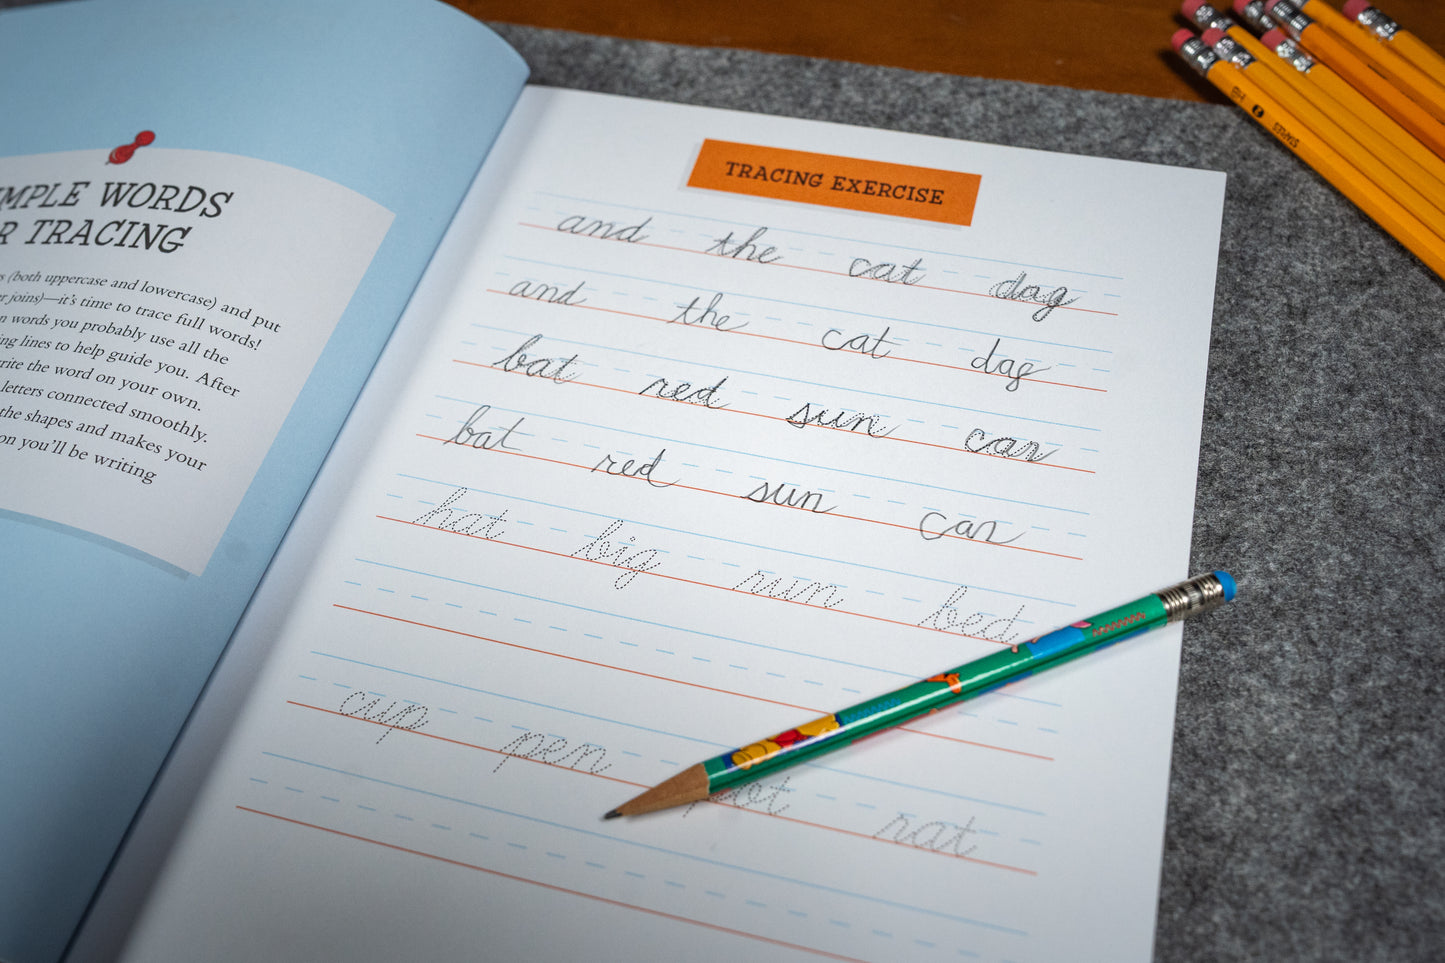 IMPLE WORDS
R TRACING
(both uppercase and lowercase) and put
joins)—it's time to trace full words!
words you probably use all the
lines to help guide you. After
write the word on your own.
letters connected smoothly.
the shapes and makes your
you'll be writing
TRACING EXERCISE
and the cat dog
and the cat dog
bat red sun car
bat red sun car
hat big run bed
cup pen pot rat
STAPLES 2 HB